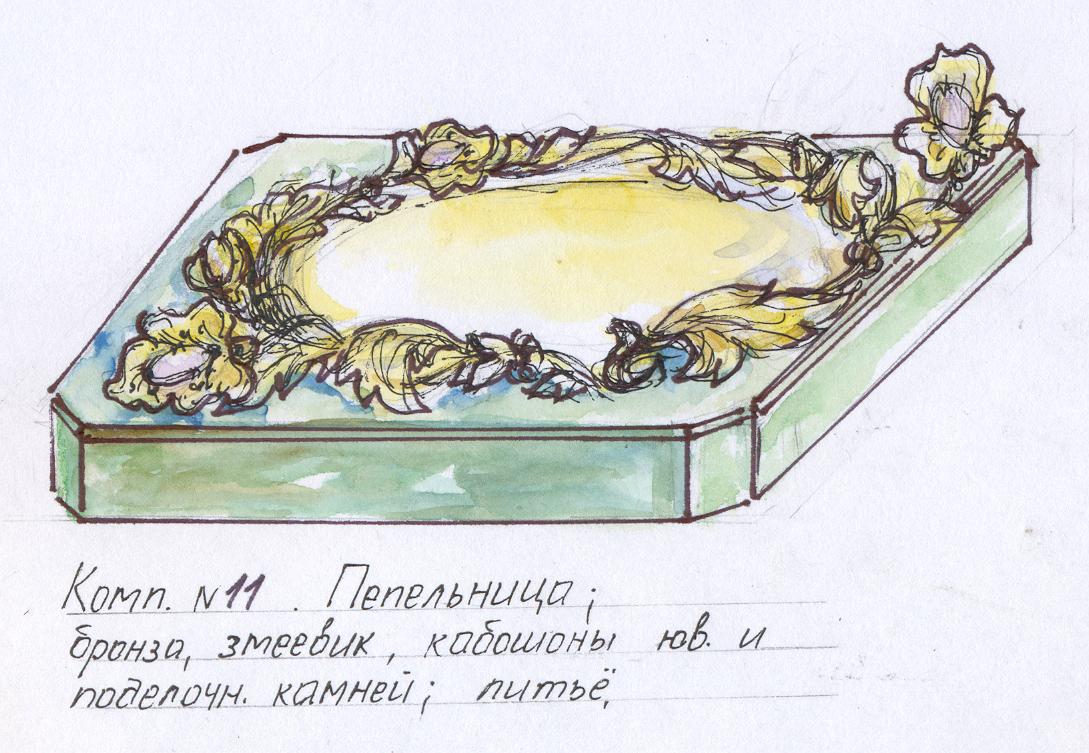 Комп. N 11. Пепельница;
бронза, змеевик, кабошоны юв. и
поделочн. камней; литьё,